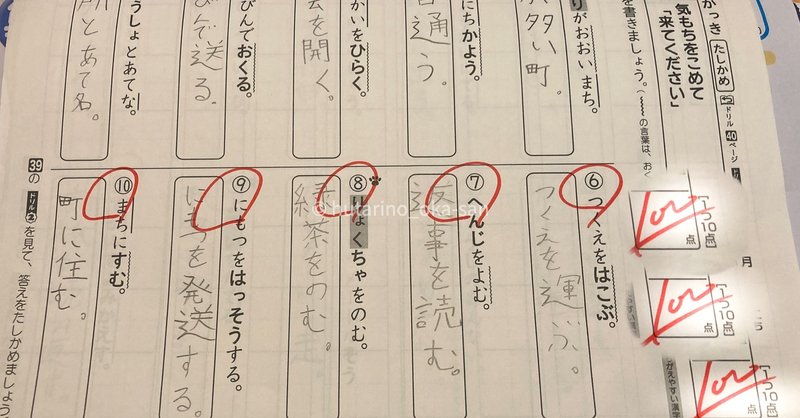 かっき たしかめ
ドリル 40 ページ
気もちをこめて
「来てください」
を書きましょう。(〰〰の言葉は、おく
りがおおいまち。
多い町。
にちかよう。
通う。
かいをひらく。
を開く。
びんでおくる。
びんで送る。
うしょとあてな。
所とあて名。
[1つ10点]
100
点
⑥ つくえをはこぶ。
つくえを運ぶ。
⑦ んじをよむ。
返事を読む。
⑧ りょくちゃをのむ。
緑茶をのむ。
⑨ にもつをはっそうする。
にもつを発送する。
⑩ まちにすむ。
町に住む。
月
[1つ10点]
100
点
[1つ10点]
100
39の ドリル② を見て、答えをたしかめましょう
© hukarino_oka-san